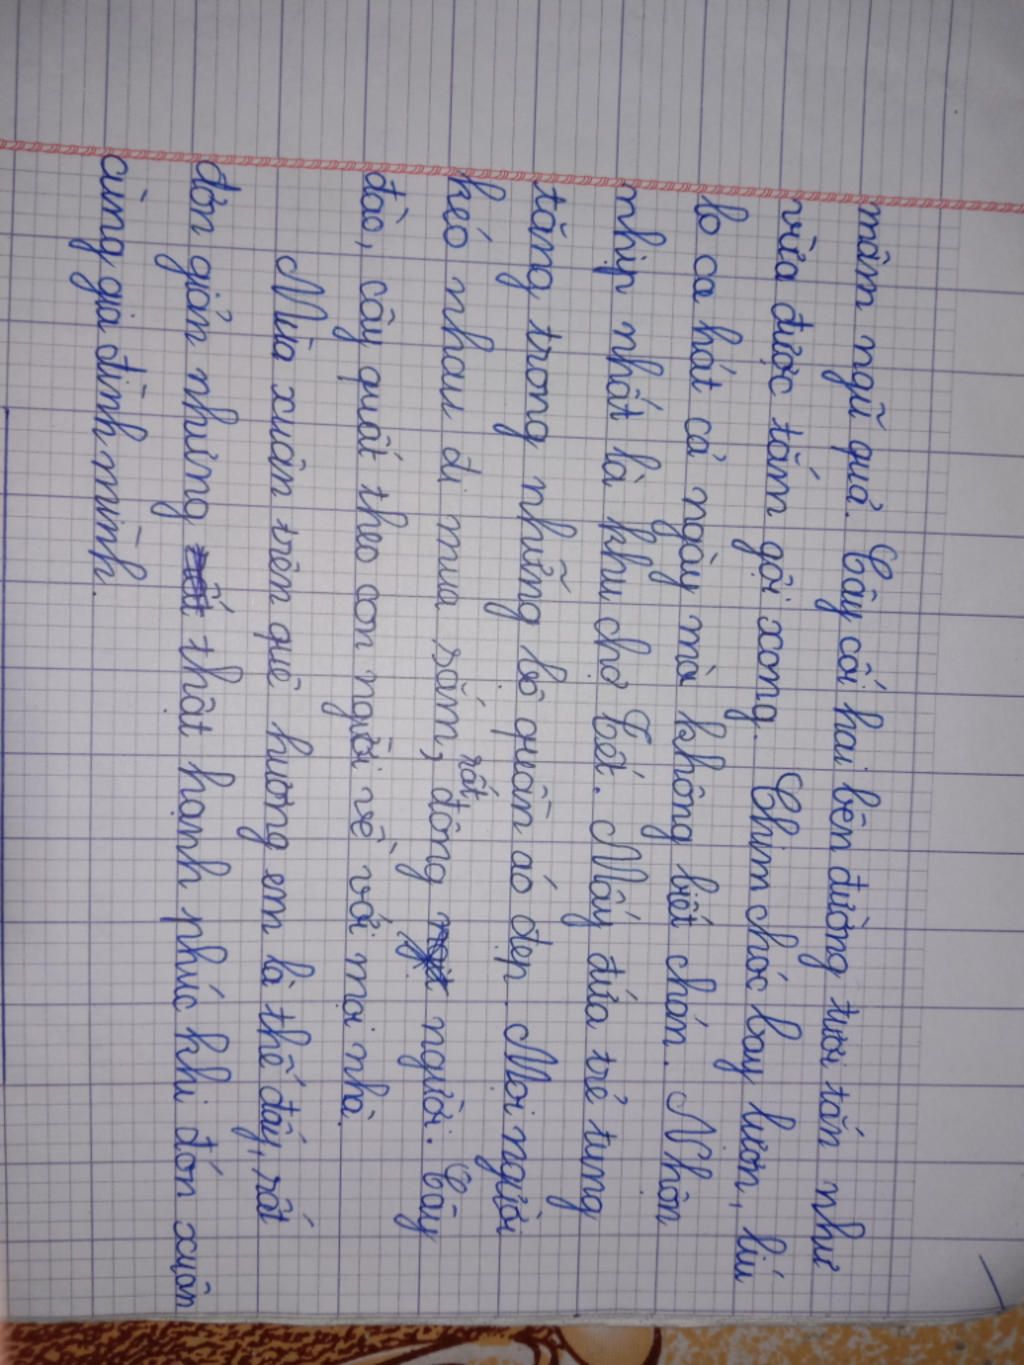 mâm ngũ quả. Cây cối hai bên đường tươi tắn như
vừa được tắm gội xong. Chim chóc bay lượn, líu
lo ca hát cả ngày mà không biết chán. Nhộn
nhịp nhất là khu chợ Tết. Mấy đứa trẻ tung
tăng trong những bộ quần áo đẹp. Mọi người
kéo nhau đi mua sắm, rất đông người. Cây
đào, cây quất theo con người về với mọi nhà.
Mùa xuân trên quê hương em là thế đấy, rất
đơn giản nhưng thật hạnh phúc khi đón xuân
cùng gia đình mình.